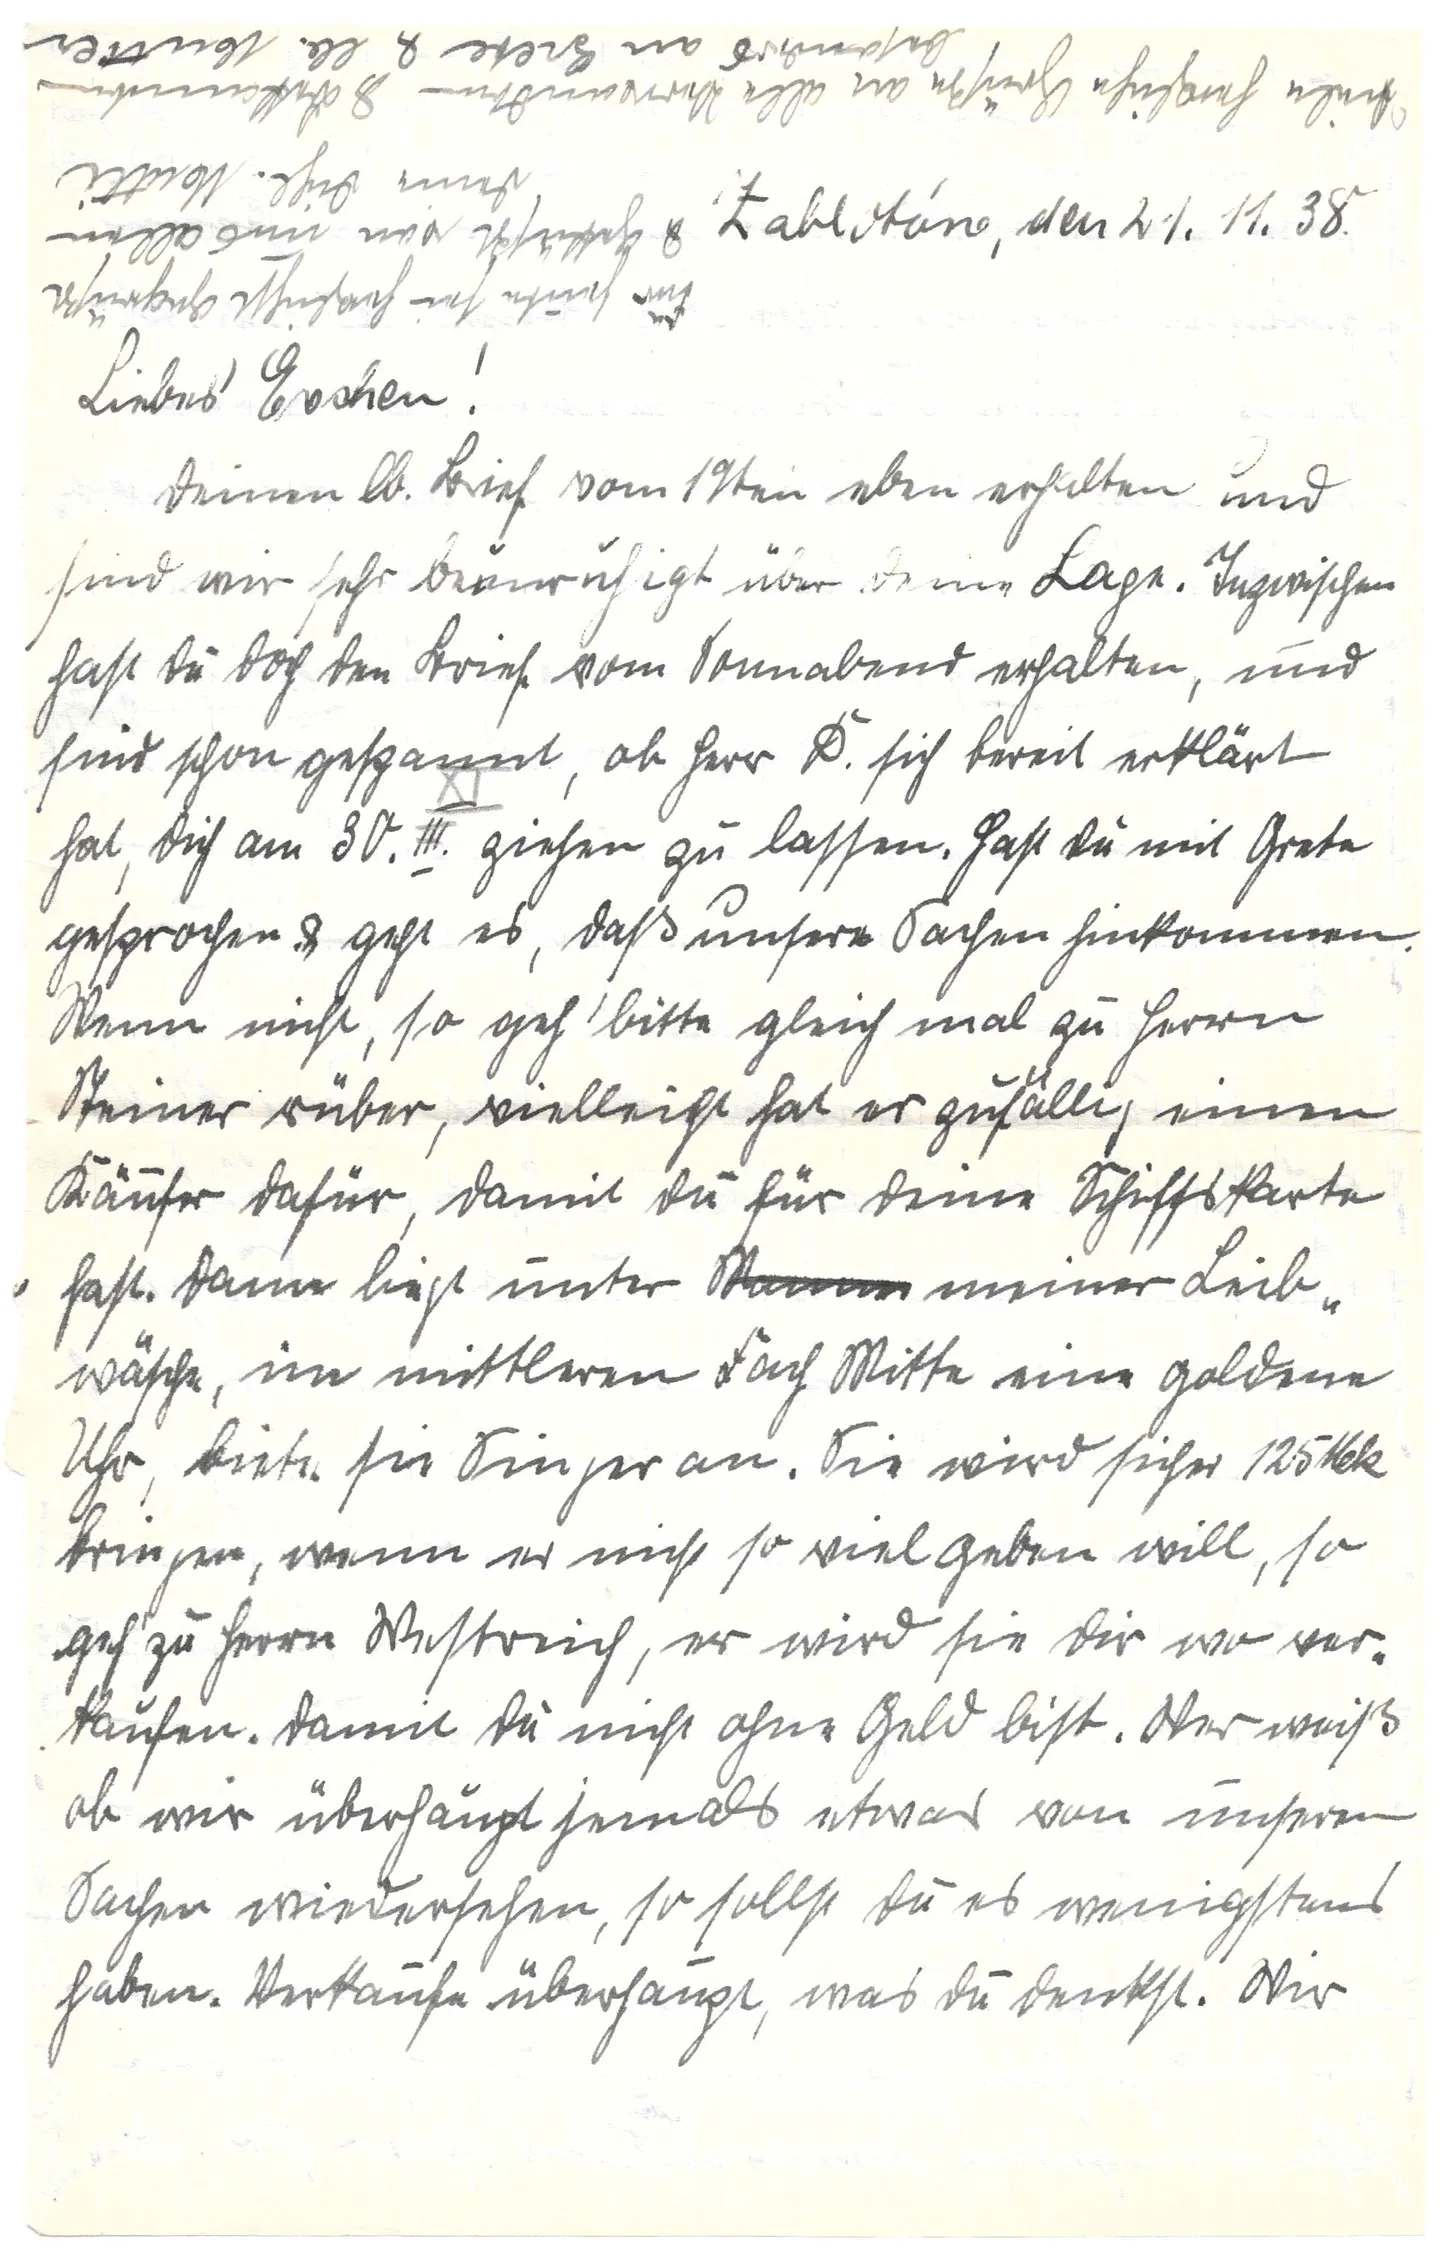 Zablotów, den 21. 11. 38.
Liebes Evchen!
Deinen lb. Brief vom 19ten eben erhalten und
sind wir sehr beunruhigt über deine Lage. Inzwischen
hast du doch den Brief vom Sonnabend erhalten, und
sind schon gespannt, ob Herr K. sich bereit erklärt
hat, dich am 30. III. XI ziehen zu lassen. Hast du mit Grete
gesprochen & geht es, daß unsere Sachen hinkommen.
Wenn nicht, so geh' bitte gleich mal zu Herrn
Steiner rüber, vielleicht hat er zufällig einen
Käufer dafür, damit du für deine Schiffskarte
hast. Dann liegt unter meiner Leib„
wäsche, im mittleren Fach Mitte eine goldene
Uhr, biete sie Singer an. Sie wird sicher 125 Mk
bringen, wenn er nicht so viel geben will, so
geh' zu Herrn Westreich, er wird sie dir wo ver-
kaufen. Damit du nicht ohne Geld bist. Wer weiß
ob wir überhaupt jemals etwas von unseren
Sachen wiedersehen, so sollst du es wenigstens
haben. Verkaufe überhaupt, was du denkst. Wir
Für heute sei herzlichst gegrüßt
& geküßt von uns allen
deine dich l. Mutti
Viele herzliche Grüße an alle Verwandten & Bekannten
besonders an Grete & lb. Mutter